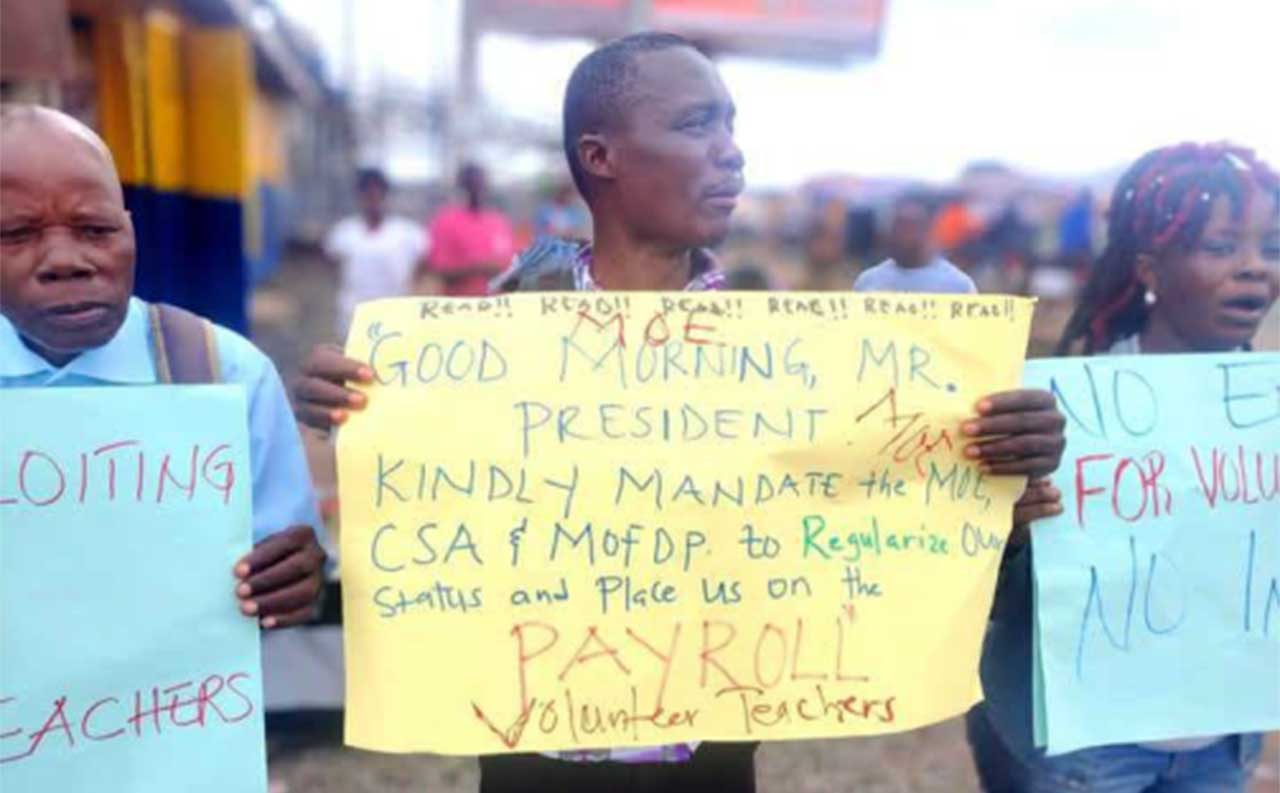 READ!! READ!! READ!! READ!! READ!! READ!!
MOE
"GOOD MORNING, MR.
PRESIDENT.
KINDLY MANDATE the MOE,
CSA & MOFDP. to Regularize Our
Status and Place us on the
PAYROLL"
Volunteer Teachers
LOITING
EACHERS
NO E
FOR VOLU
NO I